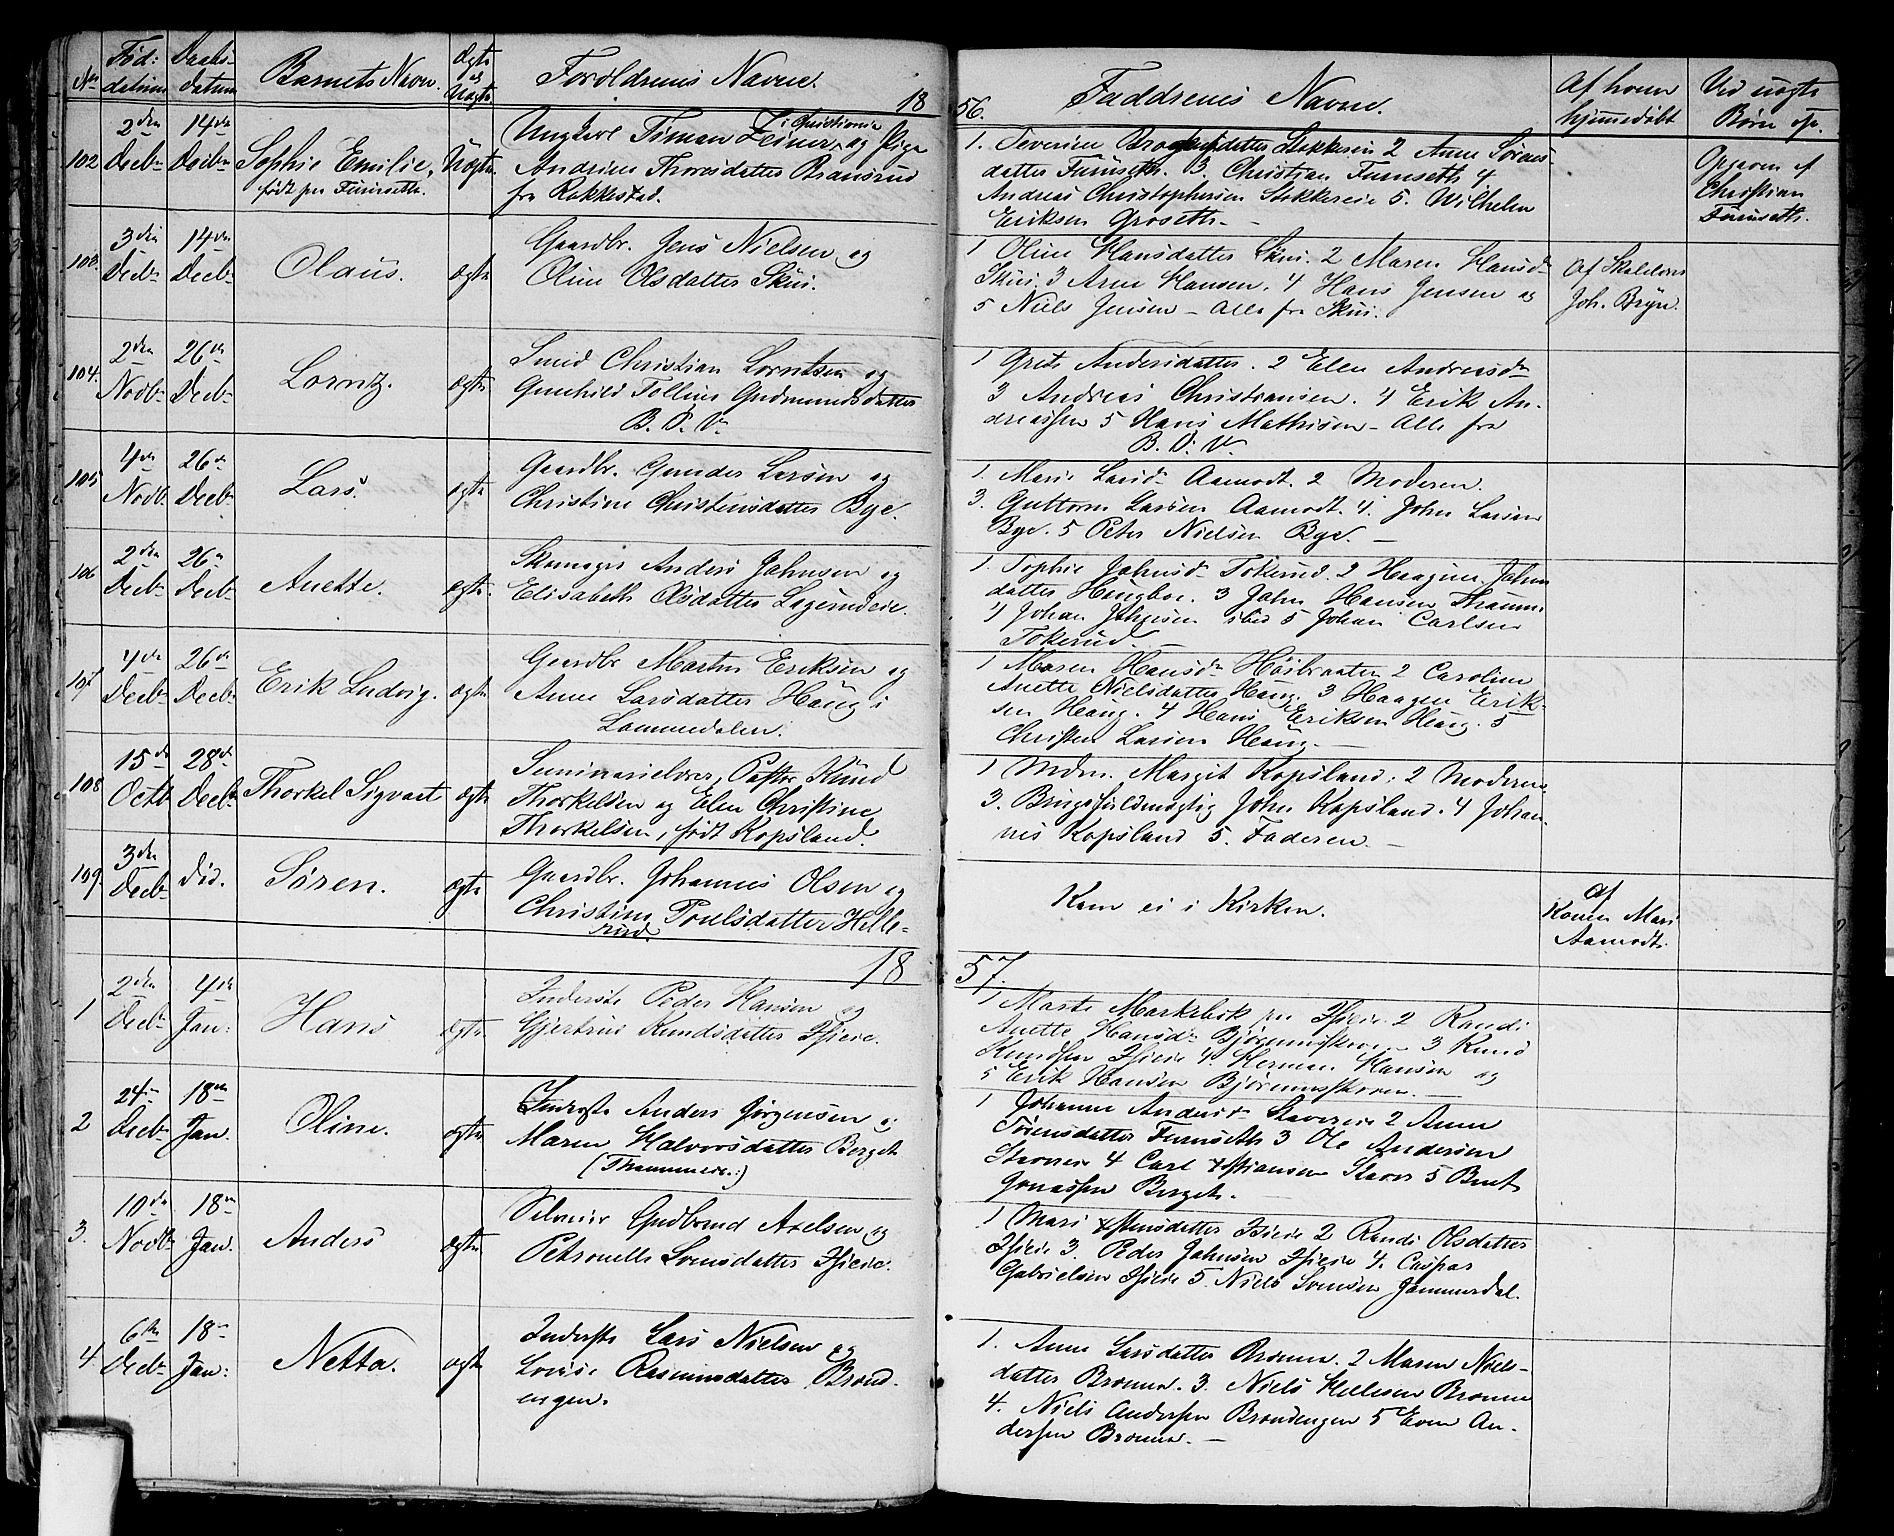 Nr. Fød: datum Daabs- datum Barnets Navn. Ægte og Uægte Forældrenes Navne. 18
56. Faddrenes Navne. Af hvem hjemmedøbt Ved uægte Børn
102 2den Decbr 14de Decbr Sophie Emilie, født paa Furuseth. Uægte
Ungkarl Timan Zeiner, i Christiania og Pige
Andrine Thoresdatter Bransrud
fra Rakkestad.
1. Severine datter Stokkereie 2 Anne Sørens-
datter Furuseth. 3. Christian Furuseth 4
Andreas Christophersen Stokkereie 5. Wilhelm
Eriksen Groseth. -
Opgivn. af
Christian
Furuseth.
103. 3die Decbr 14de Decbr Olaus. ægte
Gaardbr. Jens Nielsen og
Oline Olsdatter Skui.
1 Oline Hansdatter Skui. 2 Maren Hansd.
Skui. 3 Arne Hansen. 4 Hans Jensen og
5 Niels Jensen - Alle fra Skui.
Af Skolelærer
Joh. Bryn.
104. 2den Novbr 26de Decbr Lorntz. ægte
Smed Christian Lorntsen og
Gunhild Tolline Gudmundsdatter
B. P. V.
1 Grete Andersdatter. 2 Elen Andreasdr
3 Andreas Christiansen. 4 Erik An-
dreassen 5 Hans Mathisen - Alle fra
B. P. V.
105 4de Novb. 26de Decbr Lars. ægte
Gaardbr. Gunder Larsen og
Christine Christensdatter Bye.
1. Marie Larsdr Aamodt. 2 Moderen.
3. Guttorm Larsen Aamodt. 4. John Larsen
Bye. 5 Peter Nielsen Bye. -
106 2den Decbr 26de Decbr Anette. ægte.
Skomager Anders Johnsen og
Elisabeth Olsdatter
1. Sophie Johnsd. Tokerud. 2 Haagine Johns
datter Haugbr. 3 John Hansen
4 Johan Johnsen ibid 5 Johan Carlsen
Tokerud. -
107 4de Decbr 26de Decbr Erik Ludvig. ægte
Gaardbr Martin Eriksen og
Anne Larsdatter Haug i
Lommedalen.
1 Maren Hansdr Høibraaten 2 Caroline
Anette Nielsdatter Haug. 3 Haagen Erik-
sen Haug. 4 Hans Eriksen Haug. 5
Christen Larsen Haug. -
108 15de Octb 28de Decbr Thorkel Sigvart ægte
Seminarielærer, Pastor Knud
Thorkelsen og Elen Christine
Thorkelsen, født Kopsland.
1 Mdm. Margit Kopsland. 2 Moderen
3. Brugsfuldmægtig John Kopsland. 4 Johan-
nes Kopsland 5. Faderen. -
109. 3die Decbr did. Søren. ægte
Gaardbr. Johannes Olsen og
Christine Poulsdatter Hille-
rud.
Kom ei i Kirken.
af
Konen Mari
Aamodt.
18 57.
1 2den Decbr 4de Jan: Hans ægte
Inderste Peder Hansen og
Gjertrud Knudsdatter
1 Marte 2 Randi
Anette Hansdr 3 Knud
Knudsen 4. Herman Hansen og
5 Erik Hansen -
2 24de Decbr 18de Jan. Oline. ægte
Inderste Anders Jørgensen og
Maren Halvorsdatter Berget
1 Johanne Andersdr 2 Anne
Sørensdatter Furuseth 3 Ole Andersen
4 Carl 5 Bent
Jonassen Berget. -
3. 10de Novbr 18de Jan. Anders ægte
Gudbrand Axelsen og
Petronelle Svensdatter
1 Mari 2 Randi Olsdatter
3. Peder Johnsen 4. Caspar
Gabrielsen 5. Niels Svensen Jammerdal.
4 6te Decbr 18de Jan: Netta. ægte
Inderste Lars Nielsen og
Lovise Rasmusdatter Brænd-
engen.
1. Anne Larsdatter Brenna. 2 Maren Niels-
datter Brenna. 3. Niels Brenna
4. Niels Andersen Brændengen 5 Even An-
dersen Brenna. -